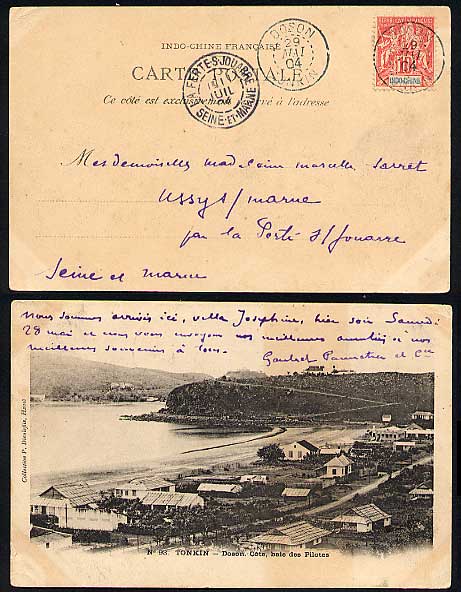 INDO-CHINE FRANÇAISE
CARTE POSTALE
Ce côté est exclusivement réservé à l'adresse
DOSON
29
MAI
04
TONKIN
LA FERTE-S-JOUARRE
JUIL
04
SEINE-ET-MARNE
REPUBLIQUE FRANÇAISE
10
INDO-CHINE
29
MAI
04
Mesdemoiselles Madeleine Marcelle Sarret
Ussy s/ marne
par la Ferté s/ Jouarre
Seine et marne
Nous sommes arrivés ici, villa Joséphine, hier soir Samedi
28 mai et nous vous envoyons nos meilleures amitiés et nos
meilleurs souvenirs à tous.
et Cie
Collection P. Dieulefils, Hanoï
N° 93. TONKIN - Doson. Côte, baie des Pilotes